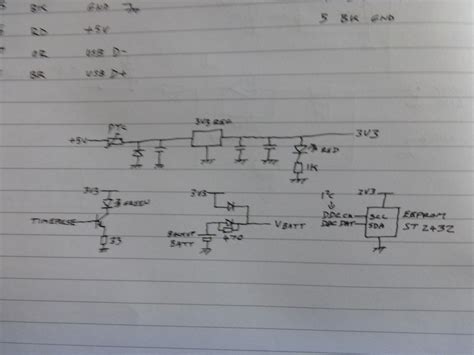 5 BK GND
6 RD +5V
7 OR USB D-
8 BR USB D+
5 BK GND
PTC
3V3 REG
+5V
3V3
RED
1K
3V3
GREEN
TIMEPULSE
33
3V3
BACKUP
BATT
470
VBATT
I²C
3V3
DDC CLK
SCL
DDC DAT
SDA
EEPROM
ST 2432